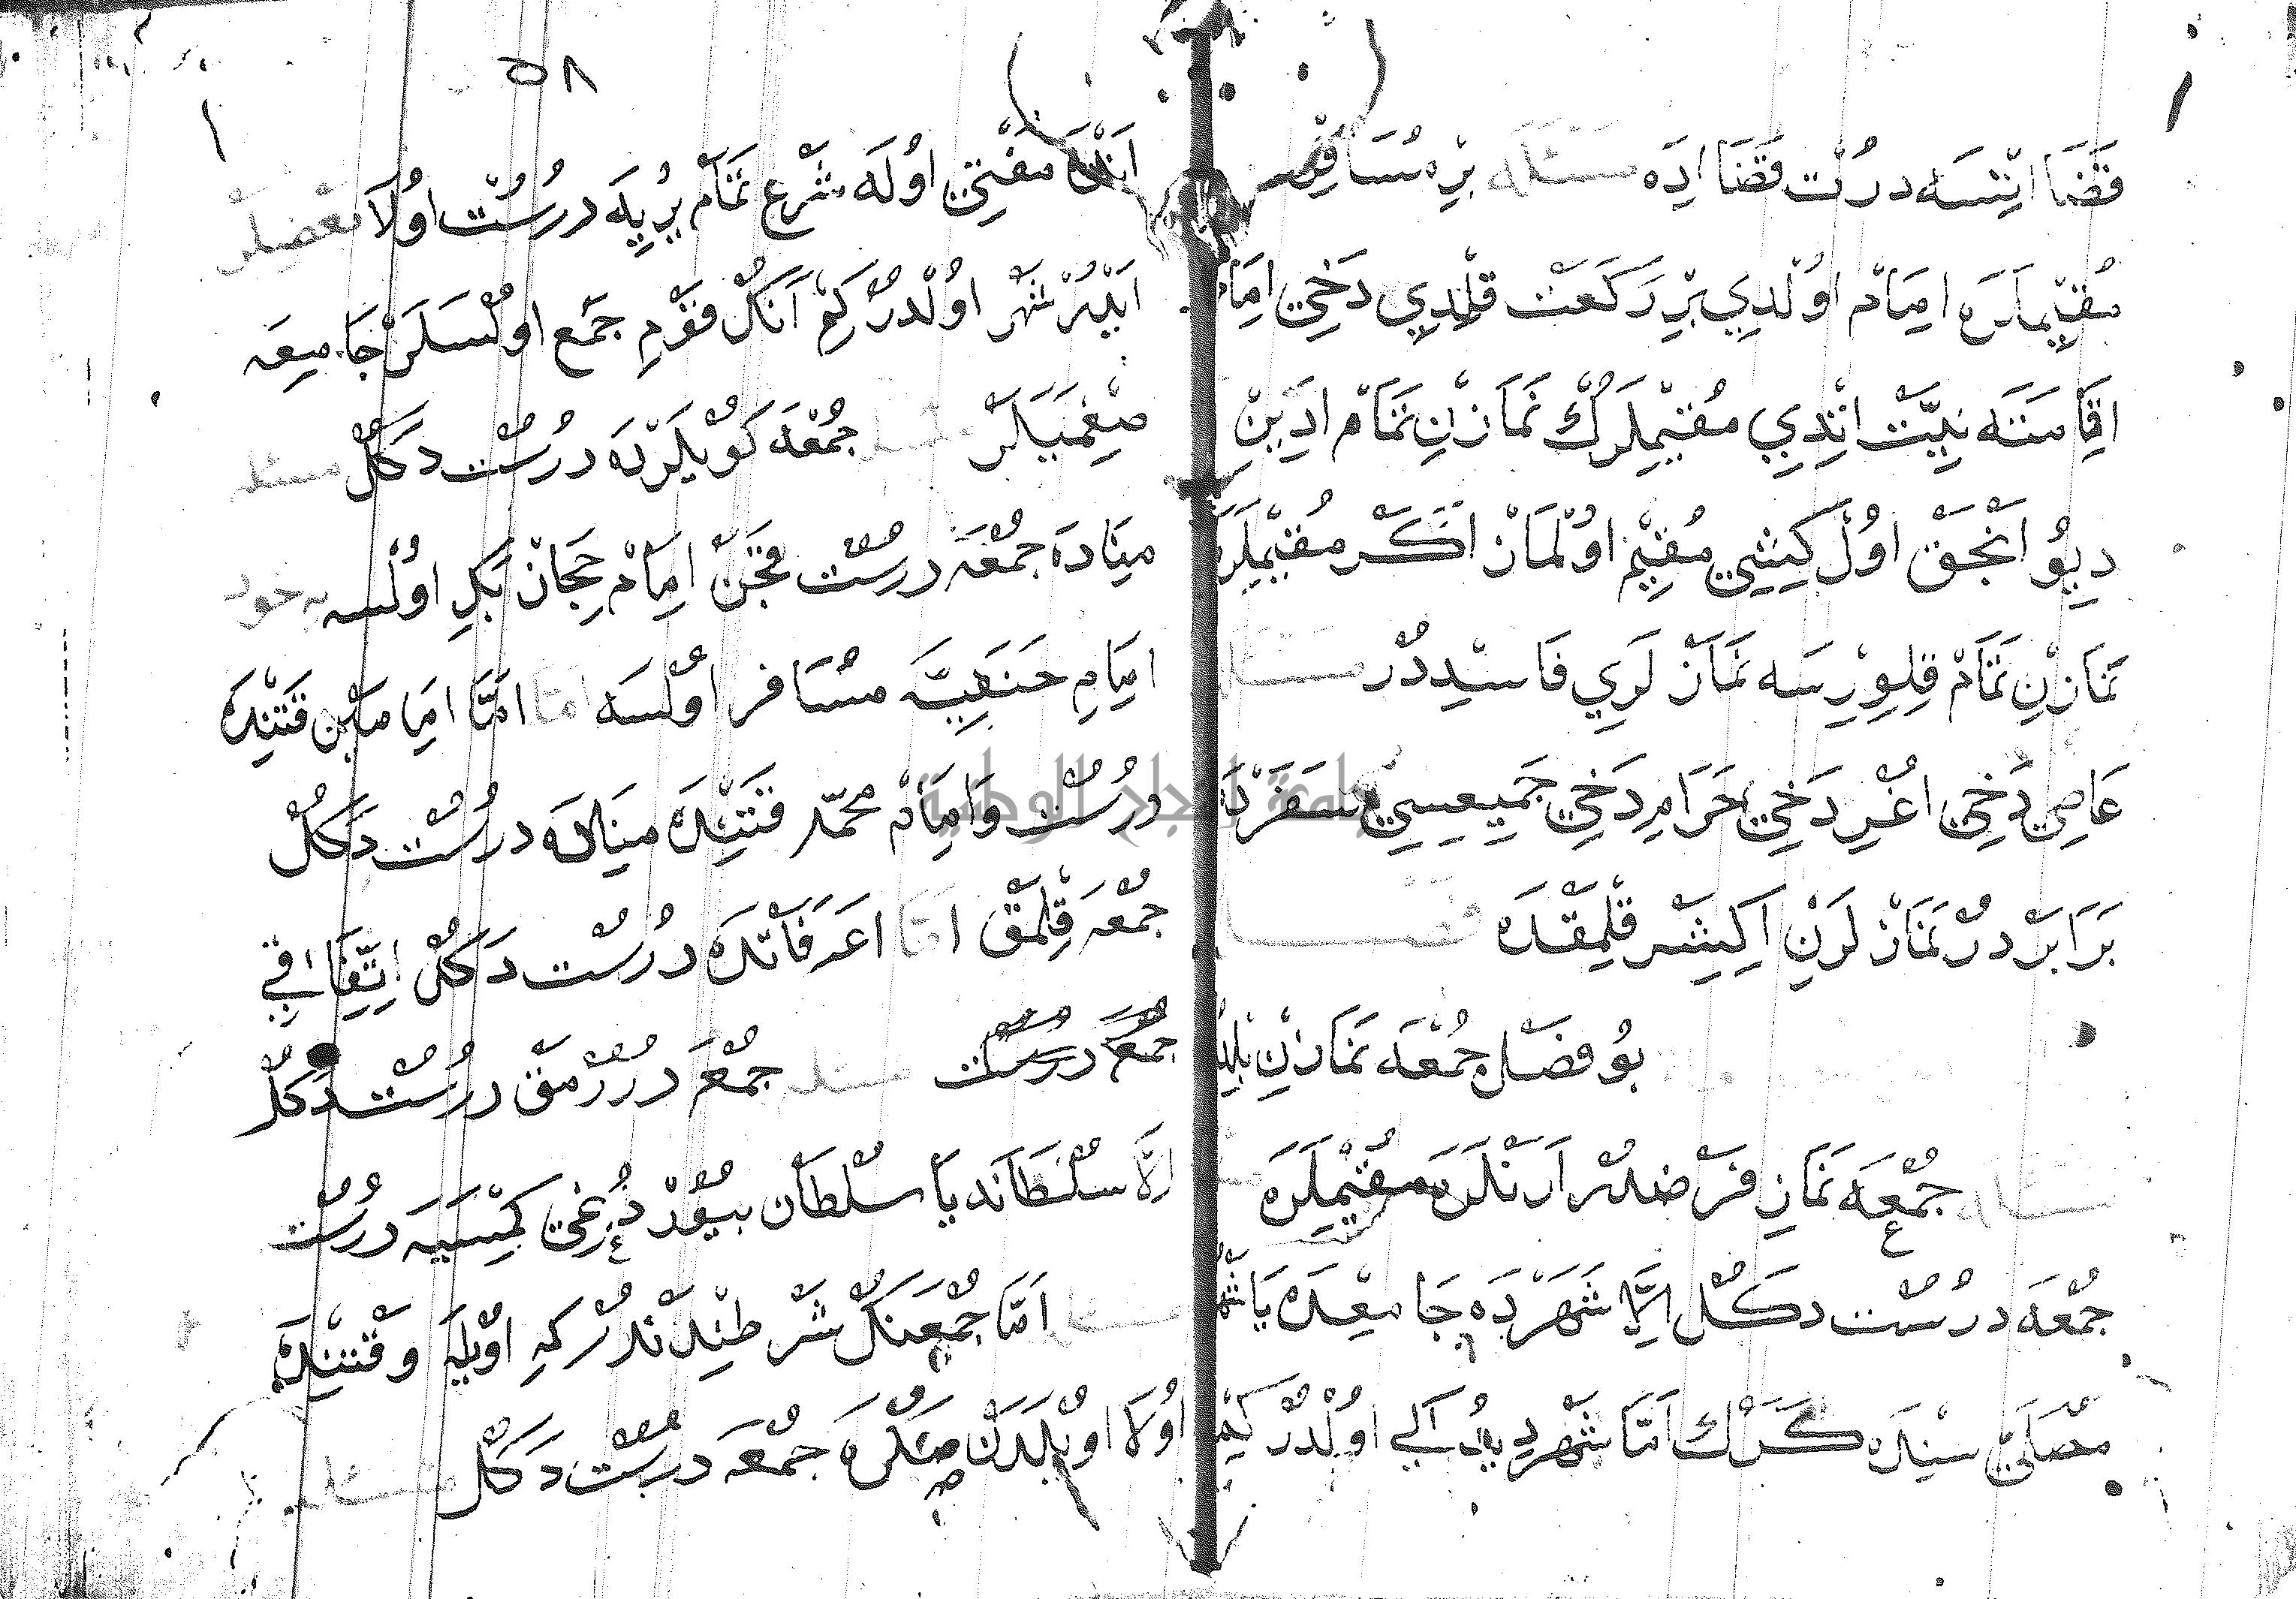 قَضَا ايْتِسَه دورْت قَضَا ادَه مسئله بِرْ مُسَافِر
مُقِيْملَرَه اِمَامْ اوُلْدِي بِرْ رَكَعَتْ قِلْدِي دَخِي اِمَام
اِقَامَتَه نِيِّتْ اتْدِي مُقِيْمْلَرُكْ نَمَازْنِ تَمَامْ ادَيِنْ
دِيوُ اَنْجَقْ اوُلْ كِيشِي مُقِيْم اوُلْمَازْ اكَرْ مُقِيْملَرِ
نَمَازْنِ تَمَامْ قِلِوِرِسَه نَمَازْ لَرِي فَاسِدْدُرْ مسئله
عَاصِي دَخِي اغْرِ دَخِي حَرَامِ دَخِي جَمِيعِسِي سَفَرْدَه
بَرَابَرْ دُرْ نَمَازْ لَرْنِ اِكِيشَر قِلْمَقْدَه فصل
بوُ فصْل جُمْعَه نَمَازنِ بلد
مسئله جُمْعَه نَمَازِ فَرْضدُر اَرَنْلَرَه مُقِيْمْلَرَه
جُمْعَه دورُسْت دكُلْ اِلَّا شَهَرْدَه جَامِعْدَه يَا شَه
مُصَلَّي سنْدَه كَرَكْ امَّا شَهْر دِيدُكْلَرِي اوُلْدُرْ كِيم
٥٨
اَنْدَه مفْتِي اوُلَه شَرْعِ تَمَامْ يُرِيَه دورُسْت اوُلَا بعْضِلَر
ايْدُرْ شَهَر اوُلْدُرْ كِمْ اَنكْ قَوْمِ جَمْع اوُلْسَلَرْ جَامِعَه
صِغْمَيَلَرْ مسئله جُمْعَه كُويْلَرْدَه دورُسْت دَكُلْ مسئله
مِنَادَه جُمْعَه دورُسْت قَجَنْ اِمَامْ حِجَازْ بَكِ اوُلْسه يه خود
اِمَامِ حَنَفِيَّه مُسَافر اوُلْسَه امَّا امَّا اِمَامَيْنِ قَتِنْدَه
دورُسْت وَامَامْ محمّد قَتِنْدَه مِنَادَه دورُسْت دَكُلْ
جُمْعَه قِلْمَقْ امَّا اعَرَفَاتْدَه دُرُسْت دَكُلْ اِتِّفَاقِي
جُمْعَه دورُسْت مسئله جُمْعَه دُرُرْمَقْ دورُسْت دَكُلْ
اِلَّا سُلْطَانَه يَا سُلْطَان بيُوُرْدُغِي كِمْسَيَه دورُسْت
مسئله امَّا جُمْعَنُكْ شَرْطِنْدَنْدُرْ كِه اوُيْلَه وقْتِنْدَه
اوُلَا اوُيْلَدَنْ صُكْرَه جُمْعَه دورُسْت دَكُلْ مسئله